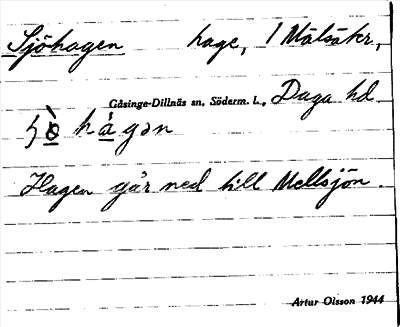 Sjöhagen hage, 1 Målsåkr,
Gåsinge-Dillnäs sn, Söderm. l., Daga hd
hagen
Hagen går ned till Mellsjön.
Artur Olsson 1944